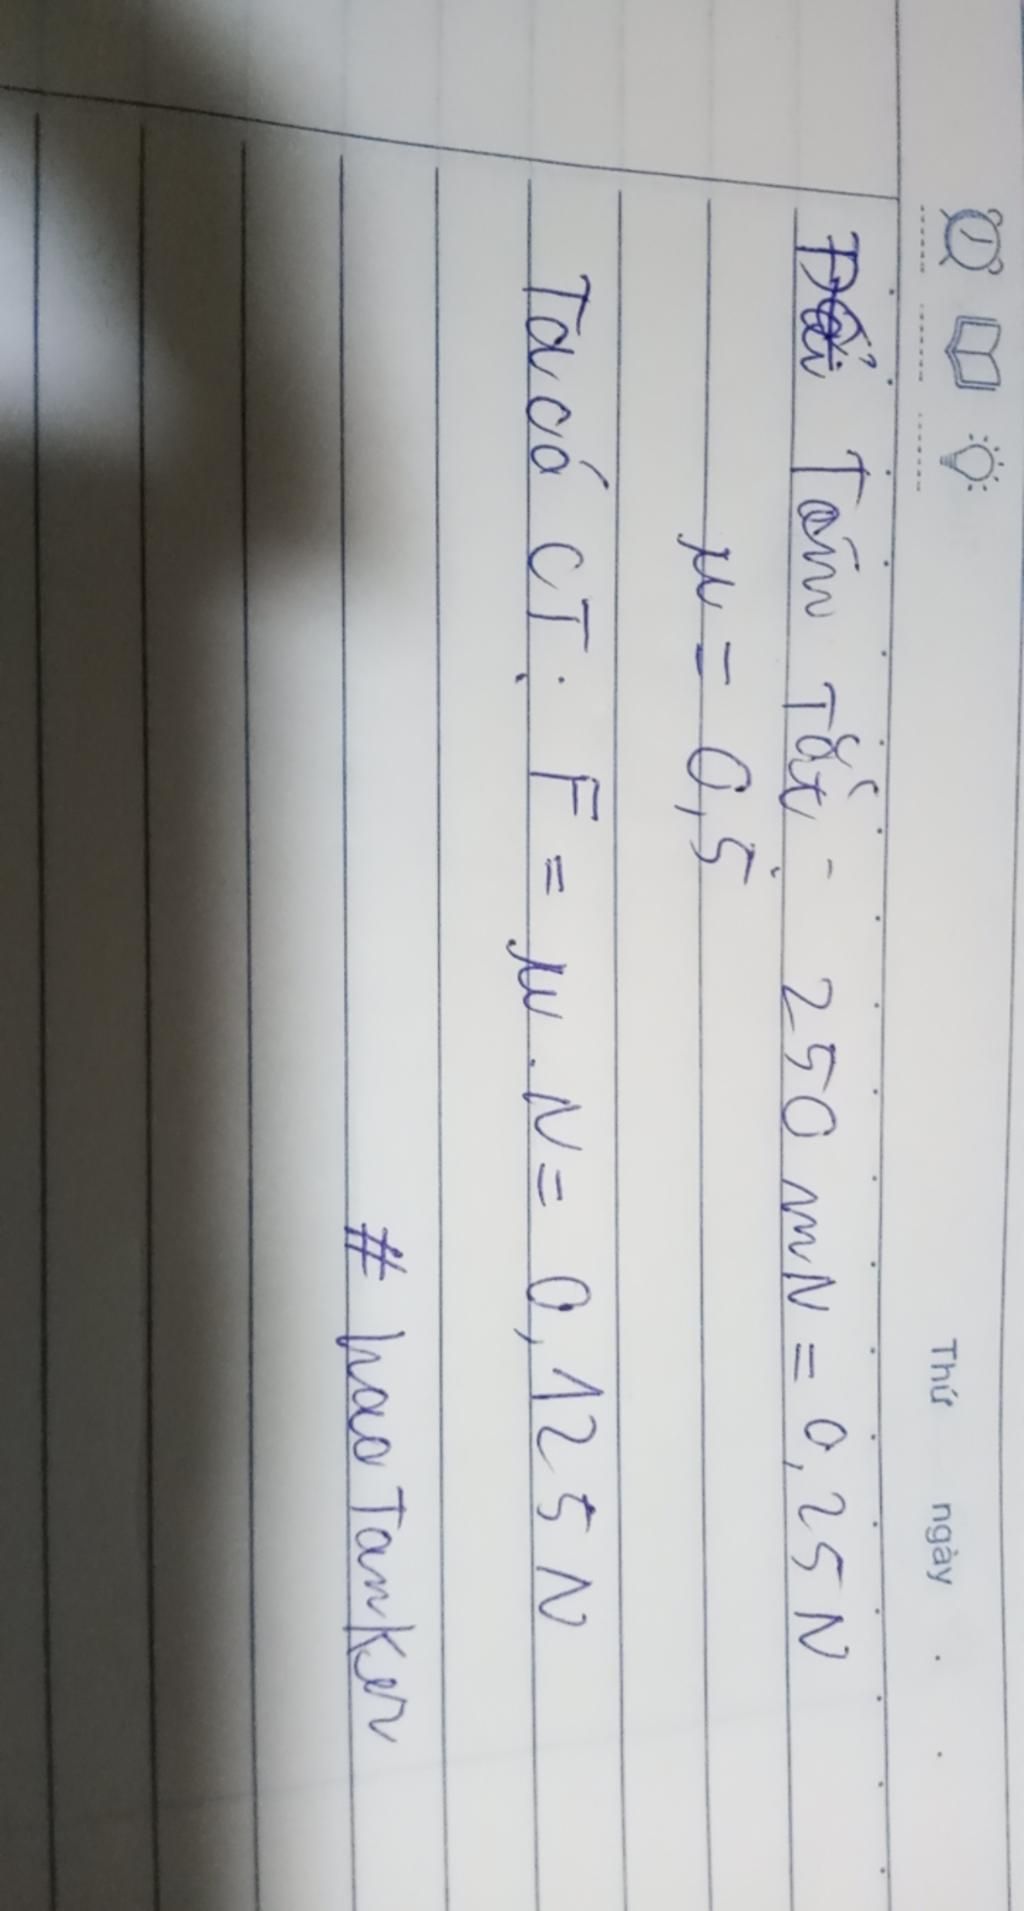 Thứ ngày
Tóm Tắt: 250 mN = 0,25 N
μ = 0,5
Ta có CT: F = μ.N = 0,125 N
# haoTanker